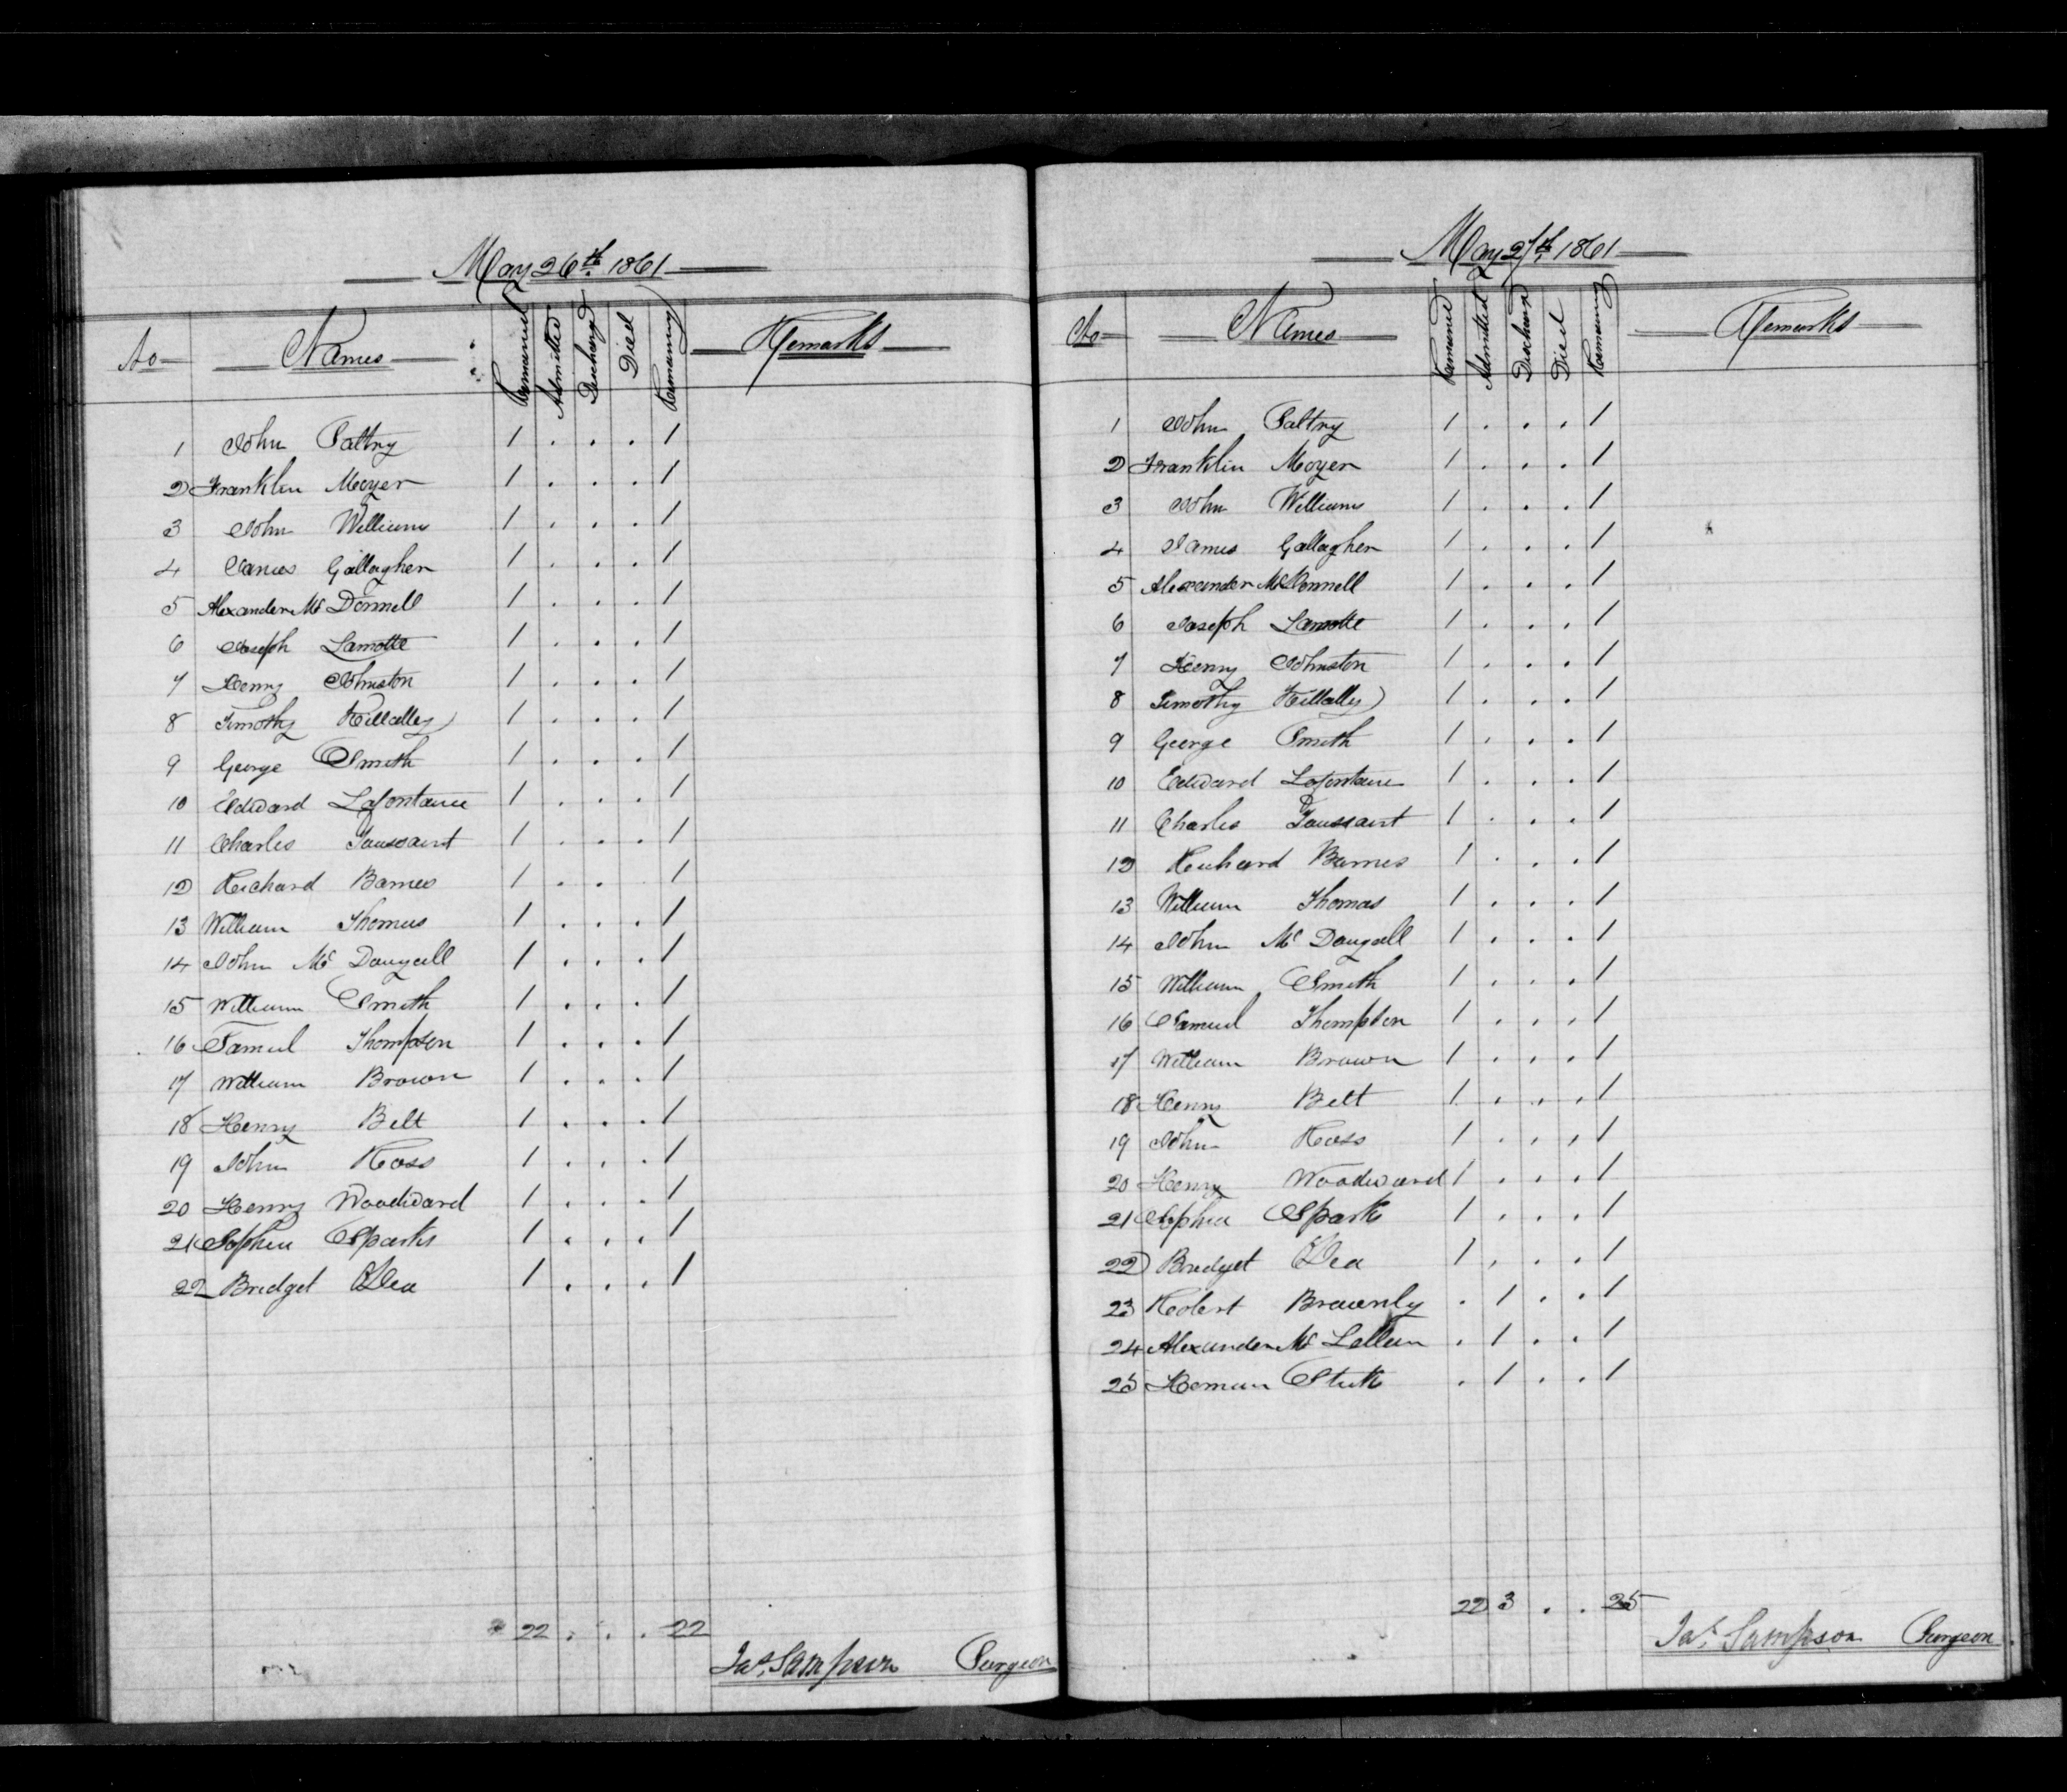 May 26th 1861
No Names Remained Admitted Discharged Died Remaining Remarks
1 John Paltry 1 . . . 1
2 Franklin Moyer 1 . . . 1
3 John Williams 1 . . . 1
4 James Gallagher 1 . . . 1
5 Alexander Mc Donnell 1 . . . 1
6 Joseph Lamotte 1 . . . 1
7 Henry Johnston 1 . . . 1
8 Timothy Killalley 1 . . . 1
9 George Smith 1 . . . 1
10 Edward Lafontaine 1 . . . 1
11 Charles Toussaint 1 . . . 1
12 Richard Barnes 1 . . . 1
13 William Thomas 1 . . . 1
14 John Mc Dougall 1 . . . 1
15 William Smith 1 . . . 1
16 Samuel Thompson 1 . . . 1
17 William Brown 1 . . . 1
18 Henry Belt 1 . . . 1
19 John Ross 1 . . . 1
20 Henry Woodward 1 . . . 1
21 Sophia Sparks 1 . . . 1
22 Bridget ODea 1 . . . 1
22 . . . 22
Jas. Sampson Surgeon
May 27th 1861
No Names Remained Admitted Discharged Died Remaining Remarks
1 John Paltry 1 . . . 1
2 Franklin Moyer 1 . . . 1
3 John Williams 1 . . . 1
4 James Gallagher 1 . . . 1
5 Alexander McDonnell 1 . . . 1
6 Joseph Lamotte 1 . . . 1
7 Henry Johnston 1 . . . 1
8 Timothy Killally 1 . . . 1
9 George Smith 1 . . . 1
10 Edward Lafontaine 1 . . . 1
11 Charles Toussaint 1 . . . 1
12 Richard Barnes 1 . . . 1
13 William Thomas 1 . . . 1
14 John Mc Dougall 1 . . . 1
15 William Smith 1 . . . 1
16 Samuel Thompson 1 . . . 1
17 William Brown 1 . . . 1
18 Henry Belt 1 . . . 1
19 John Ross 1 . . . 1
20 Henry Woodward 1 . . . 1
21 Sophia Sparks 1 . . . 1
22 Bridget ODea 1 . . . 1
23 Robert Brownly . 1 . . 1
24 Alexander Mc Lellan . 1 . . 1
25 Heman . 1 . . 1
22 3 . . 25
Jas. Sampson Surgeon